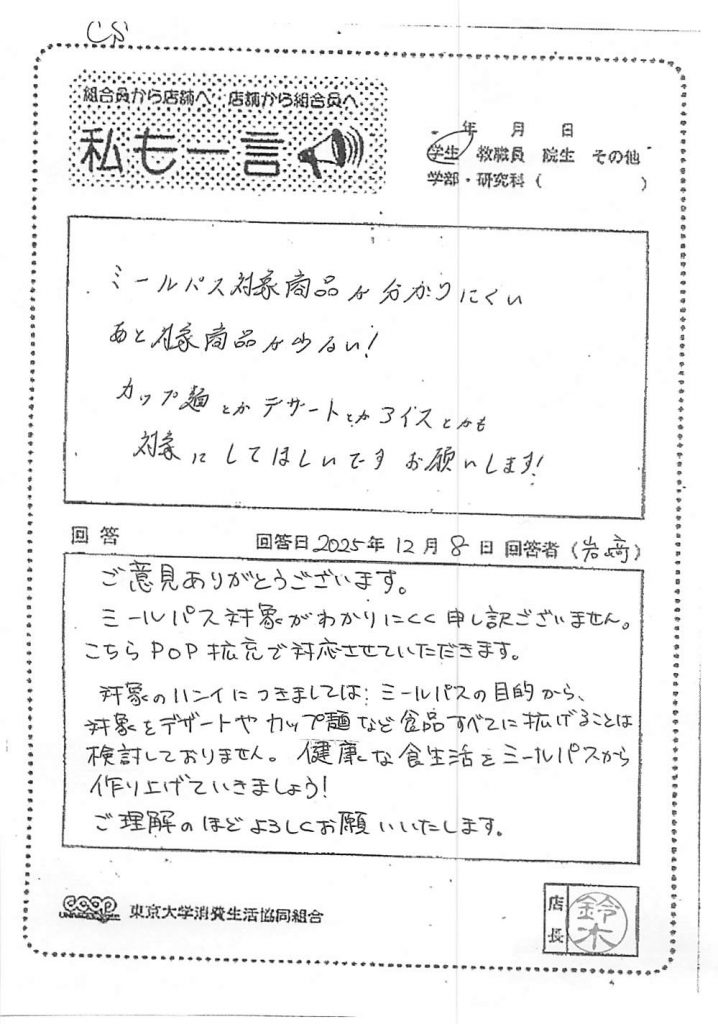 CS
組合員から店舗へ 店舗から組合員へ
私も一言
年 月 日
学生 教職員 院生 その他
学部・研究科( )
ミールパス対象商品が分かりにくい
あと対象商品が少ない!
カップ麺とかデザートとかアイスとかも
対象にしてほしいです お願いします!
回答 回答日2025年12月8日 回答者(岩崎)
ご意見ありがとうございます。
ミールパス対象がわかりにくく申し訳ございません。
こちらPOP拡充で対応させていただきます。
対象のハンイにつきましては、ミールパスの目的から、
対象をデザートやカップ麺など食品すべてに拡げることは
検討しておりません。健康な食生活をミールパスから
作り上げていきましょう!
ご理解のほどよろしくお願いいたします。
coop 東京大学消費生活協同組合
店長 鈴木